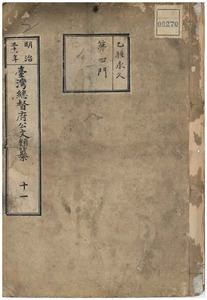 明治
三十六年
臺灣總督府公文類纂
十一
乙種永久
第四門